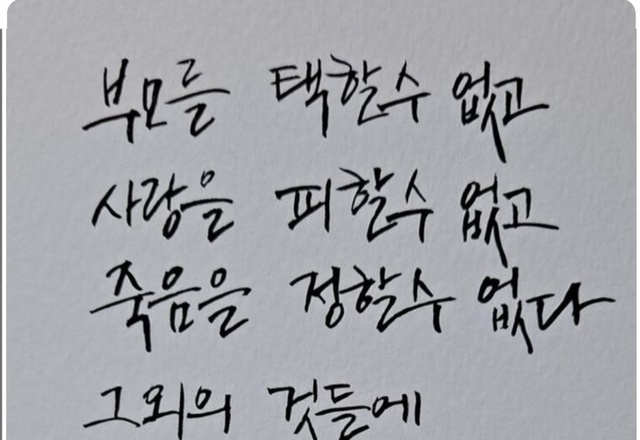 부모를 택할수 없고
사랑을 피할수 없고
죽음을 정할수 없다
그외의 것들에